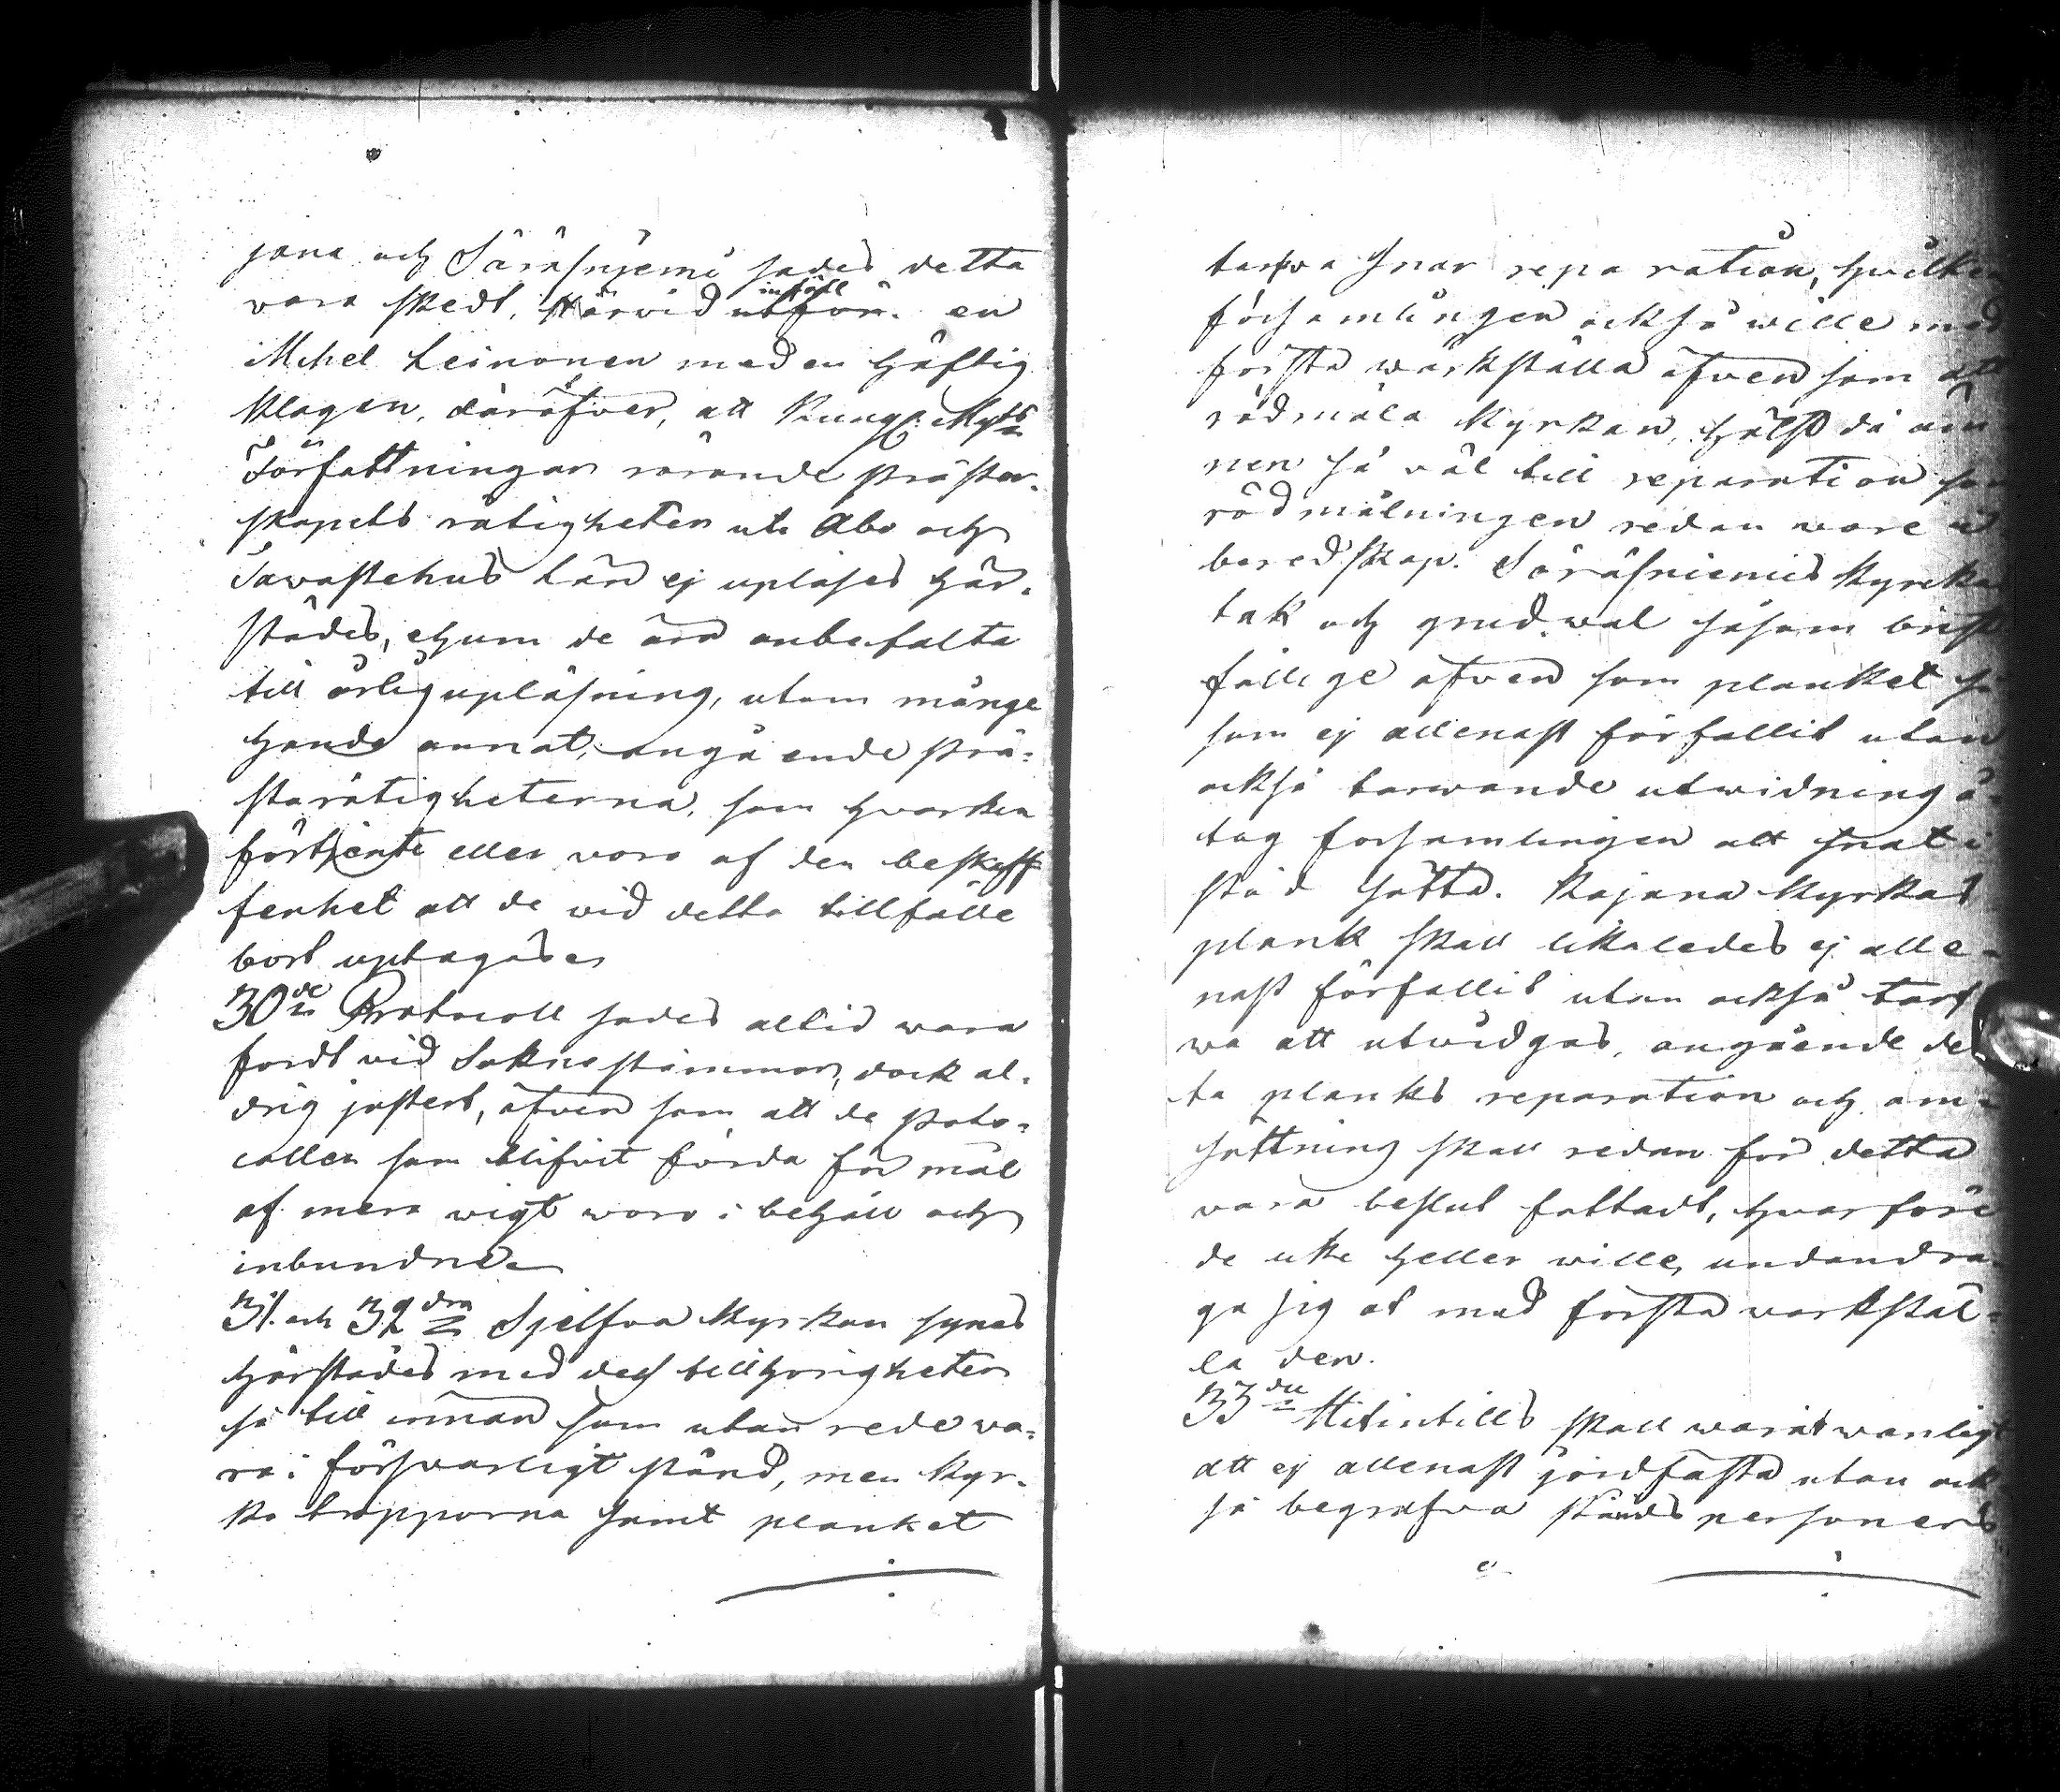 jana och Säräsnjemi sades detta
vara skedt. Härvid utför inföll en
Mchel Leinonen med en häftig
klagen, däröfver, att Kungl. Myts
Författningar rörande präster-
skapets rätigheter uti Åbo och
Tawastehus Län ej upläses här-
städes, ehum de äro anbefalta
till årlig upläsning, utom månge
hande annat, angående prä-
sterätigheterna, som hvarken
förtjente eller voro af den beskaff
fenhet att de vid detta tillfälle
bort uptagas
30de Protocoll sades altid wara
fördt vid Sokne stämmor, dock al-
drig justert, äfven som att de proto-
coller som blifvit förda för mål
af mera vigt woro i behåll och
inbundne
31. och 32dra Sjelfva Kyrkan synes
härstädes med dess tillhörigheter
så till innan som utan rede va-
ra i försvarligt stånd, men Kyr-
ko trapporna samt planket
tarfva snar reparation, hvilken
församlingen också wille med
första wärkställa äfven som att
rödmåla Kyrkan, hälst då äm
nen så väl till reparation som
rödmålningen redan wore i
beredskap. Säräsniemis Kyrko
tak och grundwal såsom brist
fällige äfven som planket så
som ej allenast förfallit utan
också tarwande utwidning å-
tog församlingen att snat i
stånd sätta. Kajana Kyrkas
plank skall likaledes ej alle-
nast förfallit utan också tarf
wa att utvidgas, angående det
ta planks reparation och om-
sättning skall redan för detta
vara beslut fattadt, hvarföre
de icke heller wille undandra-
ga sig at med första värkstäl-
la den.
33die Hitintills skall warit wanligt
att ej allenast jordfästa utan ock
så begrafva stånds personers